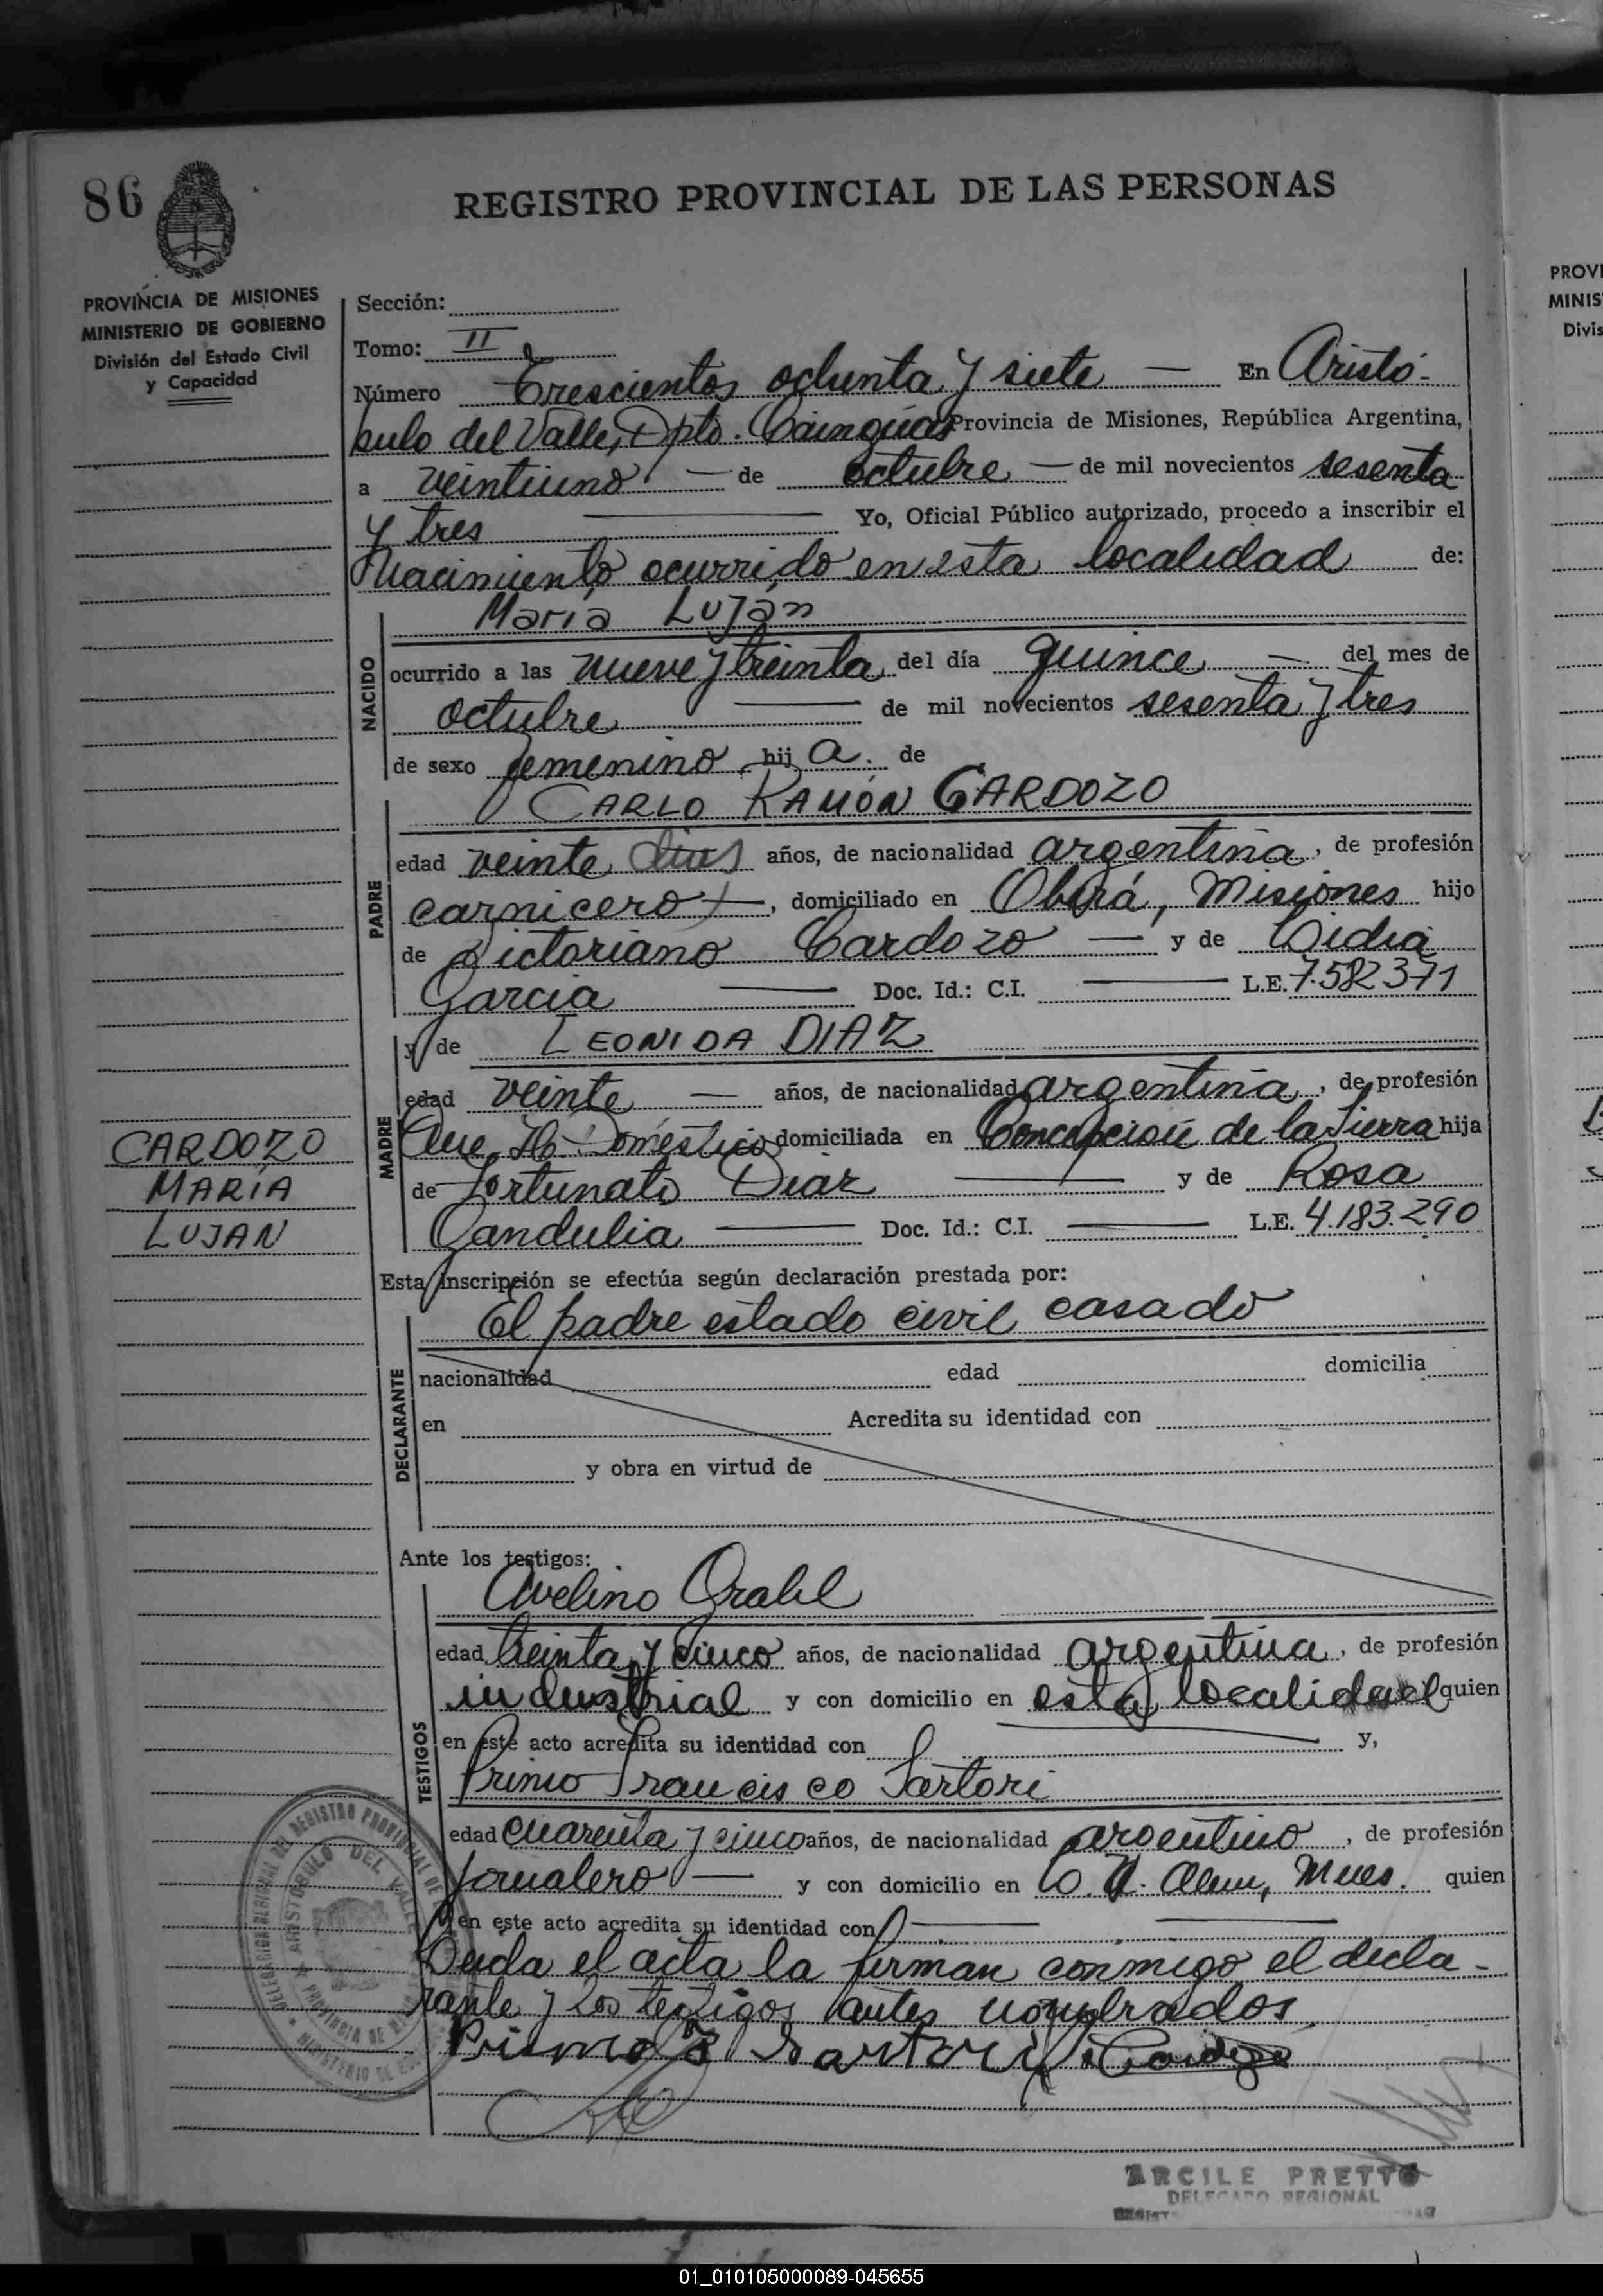 86
REGISTRO PROVINCIAL DE LAS PERSONAS
PROVINCIA DE MISIONES
MINISTERIO DE GOBIERNO
División del Estado Civil
y Capacidad
Sección:
Tomo: II
Número Trescientos ochenta y siete — En Aristó-
bulo del Valle, Dpto. Cainguás Provincia de Misiones, República Argentina,
a veintiuno — de octubre — de mil novecientos sesenta
y tres — Yo, Oficial Público autorizado, procedo a inscribir el
Nacimiento ocurrido en esta localidad de:
NACIDO
María Luján
ocurrido a las nueve y treinta del día quince — del mes de
octubre — de mil novecientos sesenta y tres
de sexo femenino hij a. de
PADRE
CARLO RAMÓN CARDOZO
edad veinte años, de nacionalidad argentina, de profesión
carnicero —, domiciliado en Oberá, Misiones hijo
de Victoriano Cardozo — y de
García — Doc. Id.: C.I. — L.E. 7.582371
MADRE
y de LEONIDA DIAZ
edad veinte — años, de nacionalidad argentina, de profesión
Que. H. Doméstico domiciliada en Concepción de la Sierra hija
de Fortunato Diaz — y de Rosa
Gandulia — Doc. Id.: C.I. — L.E. 4.183.290
CARDOZO
MARÍA
LUJAN
Esta inscripción se efectúa según declaración prestada por:
DECLARANTE
El padre estado civil casado
nacionalidad edad domicilia
en Acredita su identidad con
y obra en virtud de
Ante los testigos:
TESTIGOS
Avelino Grabl
edad treinta y cinco años, de nacionalidad argentina, de profesión
industrial y con domicilio en esta localidad quien
en este acto acredita su identidad con — y,
Primo Francisco Sartori
edad cuarenta y cinco años, de nacionalidad argentino, de profesión
Jornalero — y con domicilio en Alem, Mnes. quien
en este acto acredita su identidad con —
Leida el acta la firman conmigo el decla-
rante y los testigos antes nombrados.
Primo F Sartori Cardozo
ARISTOBULO DEL VALLE
ARCILE PRETTO
DELEGADO REGIONAL
PROVI
MINIS
Divis
01_010105000089-045655